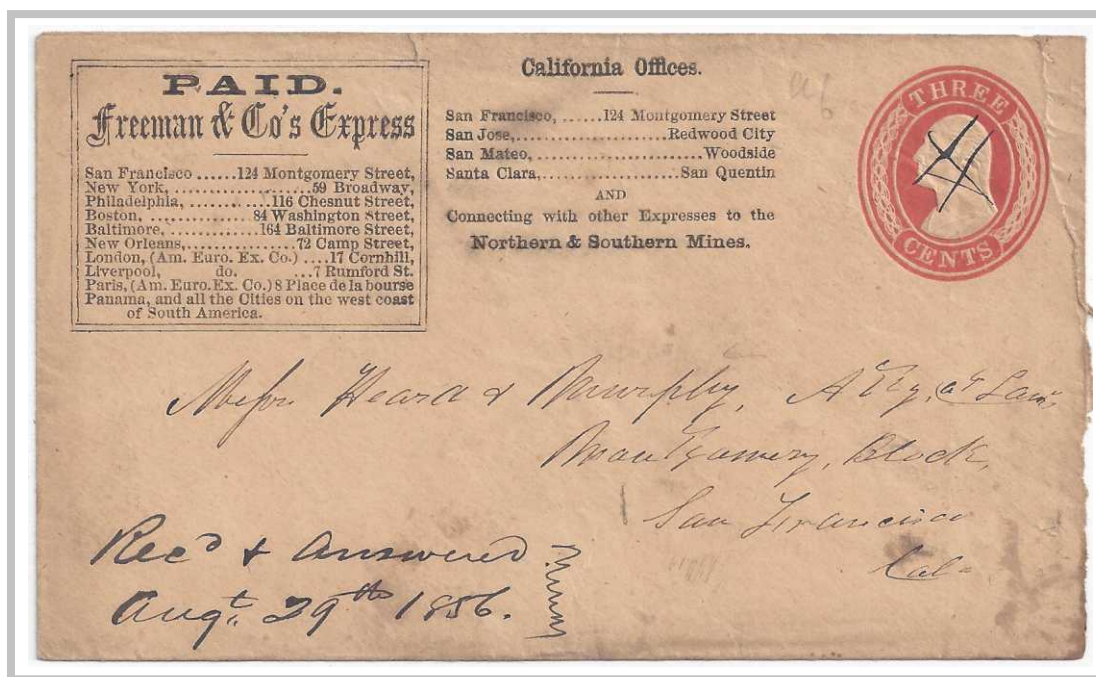 PAID.
Freeman & Co's Express
San Francisco ......124 Montgomery Street,
New York,....................59 Broadway,
Philadelphia, ............116 Chesnut Street,
Boston, ...............84 Washington Street,
Baltimore,...............164 Baltimore Street,
New Orleans,...............72 Camp Street,
London, (Am. Euro. Ex. Co.) ....17 Cornhill,
Liverpool, do. ...7 Rumford St.
Paris, (Am. Euro. Ex. Co.) 8 Place de la bourse
Panama, and all the Cities on the west coast
of South America.
California Offices.
San Francisco, ......124 Montgomery Street
San Jose,.......................Redwood City
San Mateo,.........................Woodside
Santa Clara,....................San Quentin
AND
Connecting with other Expresses to the
Northern & Southern Mines.
THREE
CENTS
Messrs Heard & Murphy, Atty, at Law
Montgomery, Block,
San Francisco
Cal-
Recd & Answered
Augt. 29th 1856.